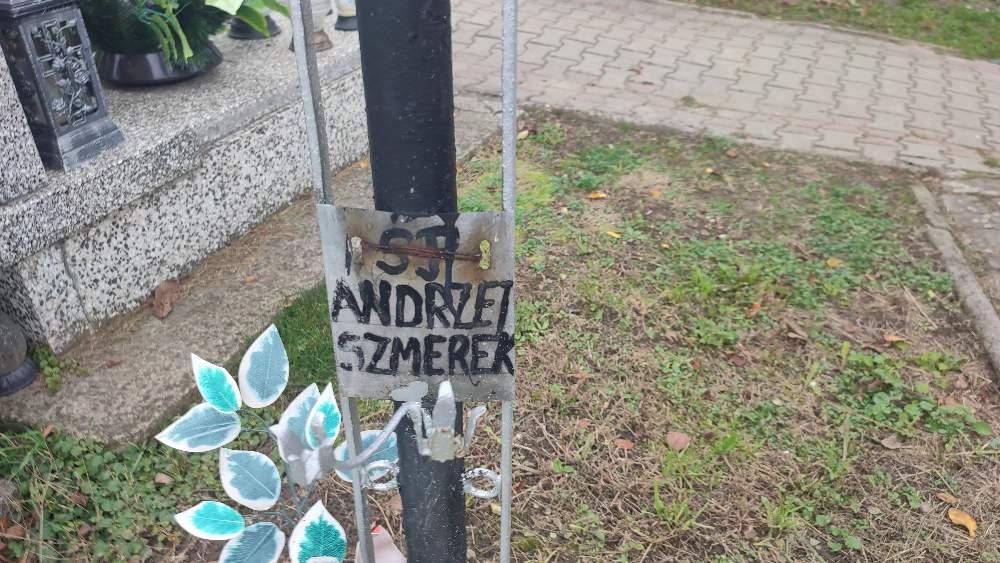 ANDRZEJ
SZMEREK